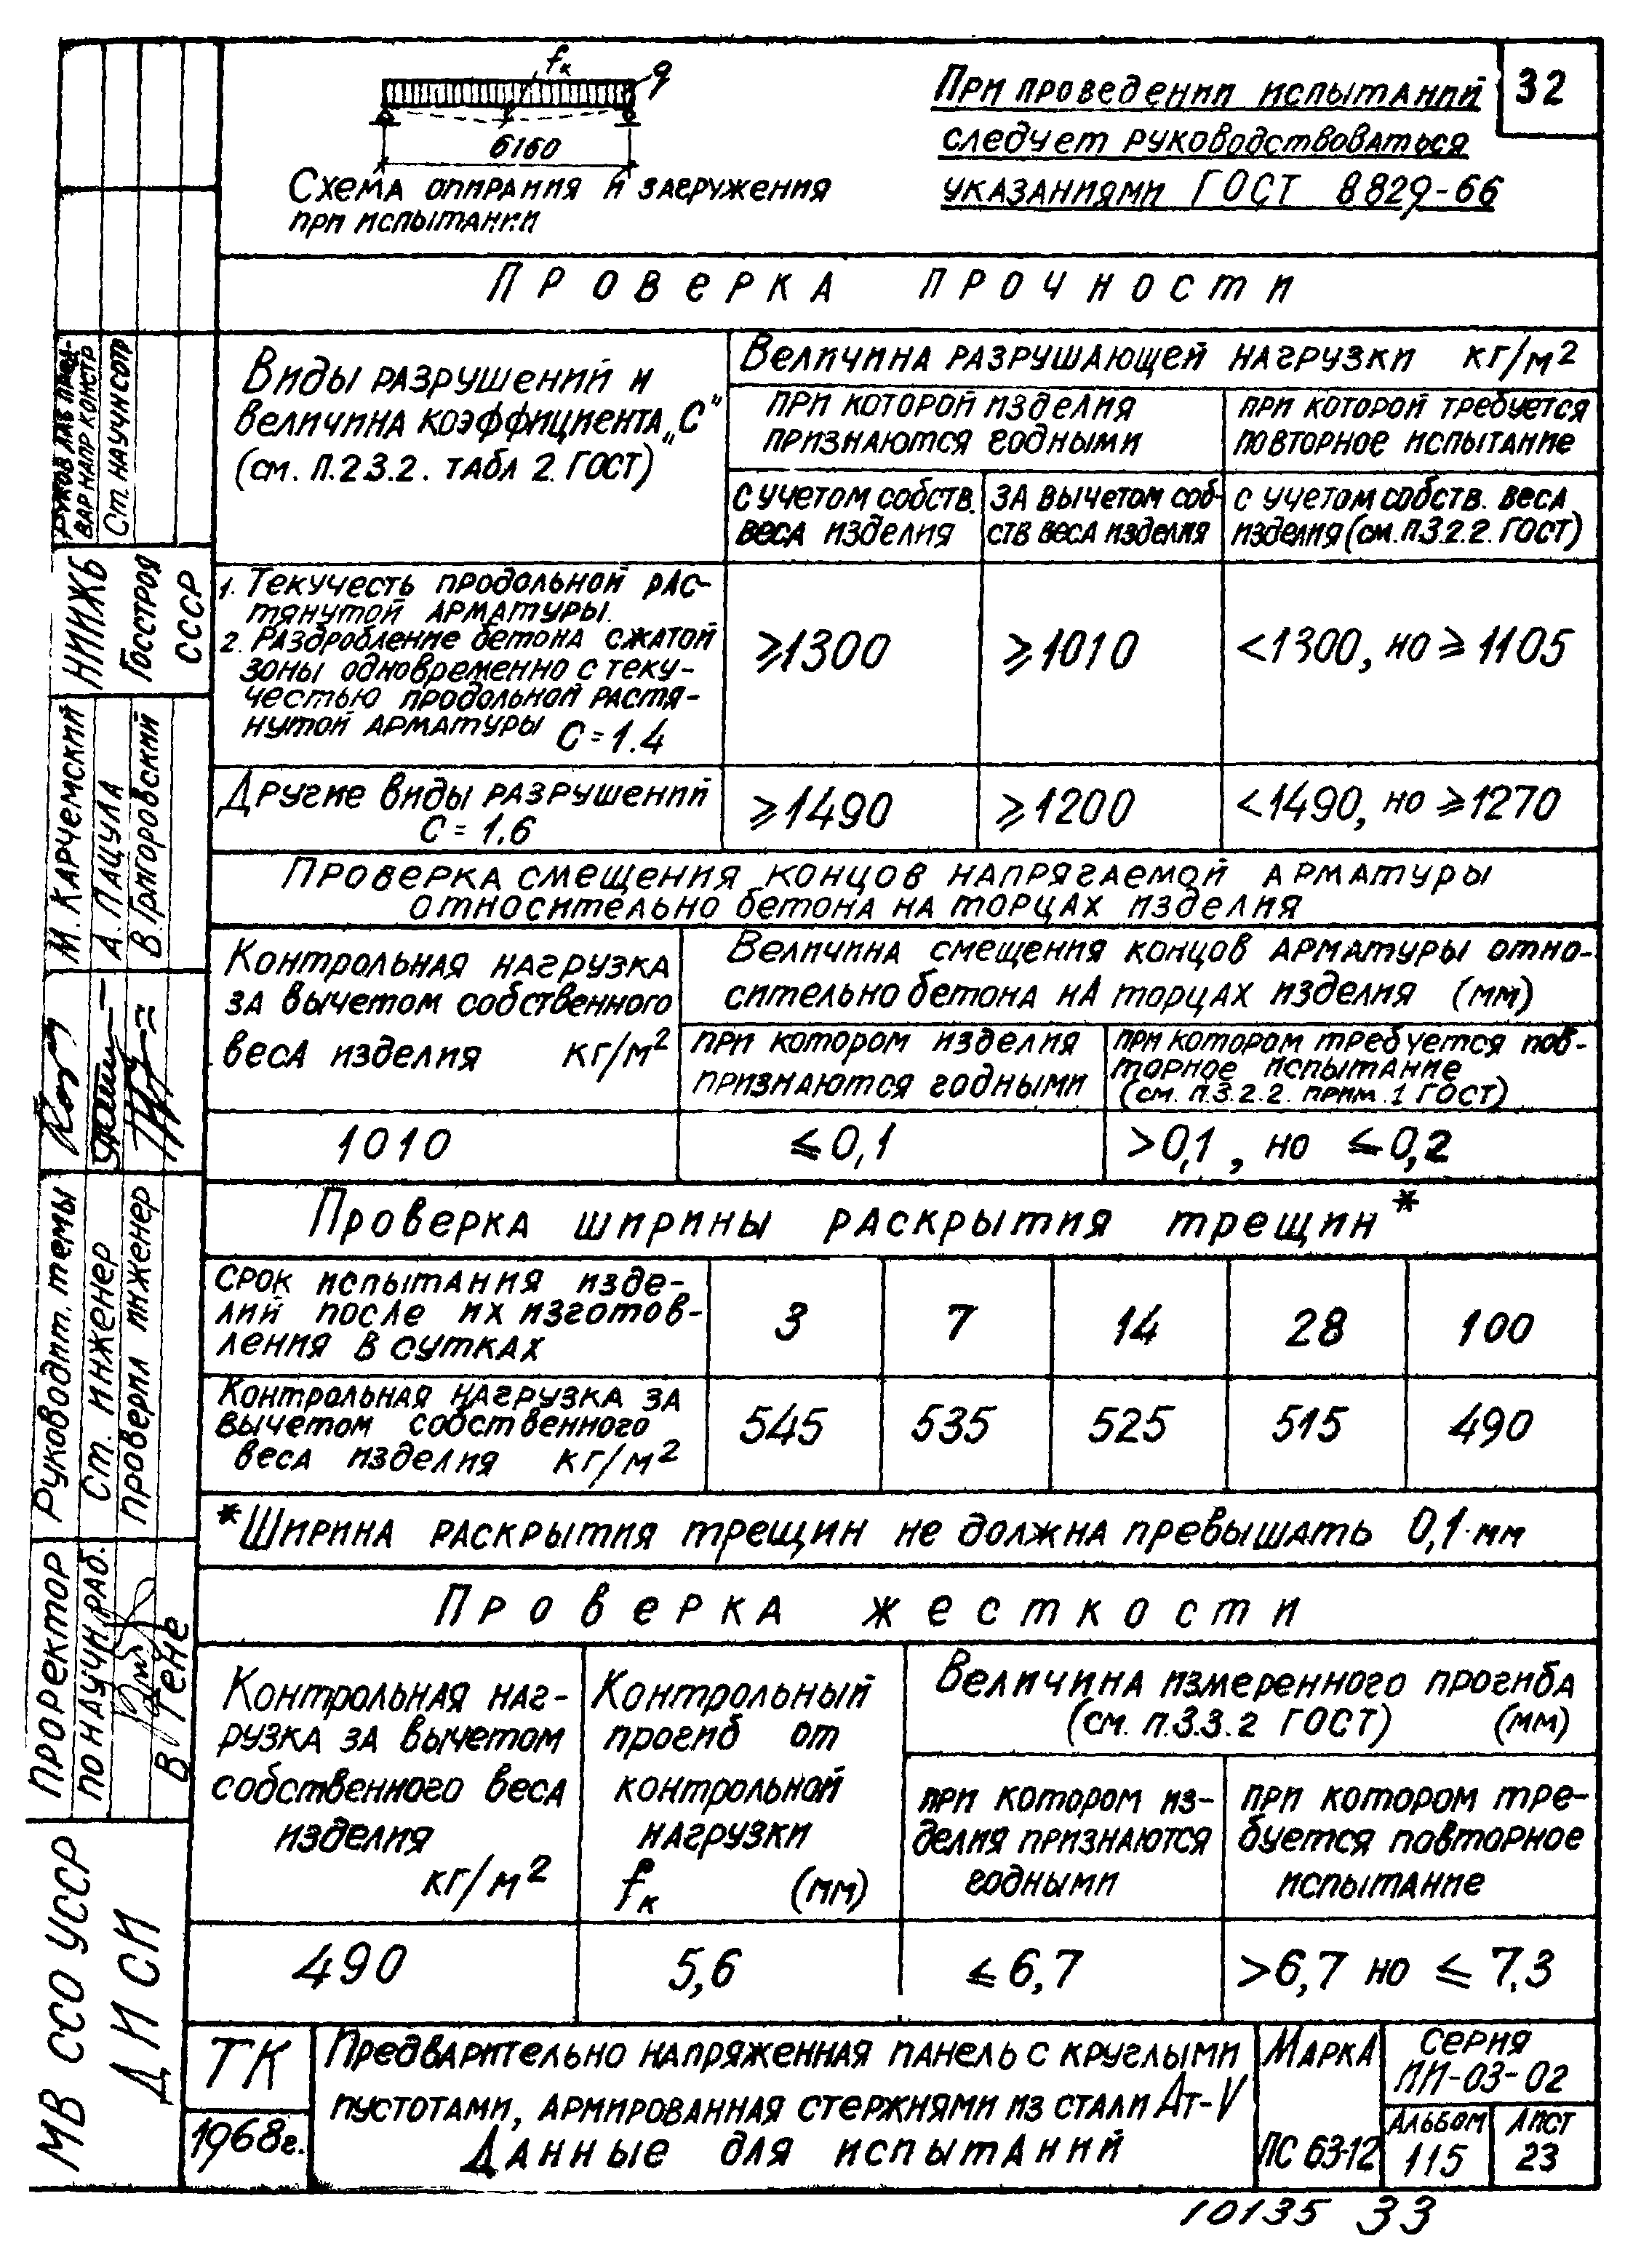 32
fк
q
6160
Схема опирания и загружения
при испытании
При проведении испытаний
следует руководствоваться
указаниями ГОСТ 8829-66
Проверка прочности
Виды разрушений и
величина коэффициента „С“
(см. п.2.3.2. табл 2. ГОСТ)
Величина разрушающей нагрузки кг/м2
при которой изделия
признаются годными
при которой требуется
повторное испытание
с учетом собств.
веса изделия
за вычетом соб-
ств веса изделия
с учетом собств. веса
изделия (см. п.3.2.2. ГОСТ)
1. Текучесть продольной рас-
тянутой арматуры.
2. Раздробление бетона сжатой
зоны одновременно с теку-
честью продольной растя-
нутой арматуры С = 1.4
≥1300
≥1010
<1300, но ≥ 1105
Другие виды разрушений
С = 1.6
≥1490
≥1200
<1490, но ≥1270
Проверка смещения концов напрягаемой арматуры
относительно бетона на торцах изделия
Контрольная нагрузка
за вычетом собственного
веса изделия кг/м2
Величина смещения концов арматуры отно-
сительно бетона на торцах изделия (мм)
при котором изделия
признаются годными
при котором требуется пов-
торное испытание
(см. п.3.2.2. прим. 1 ГОСТ)
1010
≤0,1
>0,1, но ≤0,2
Проверка ширины раскрытия трещин*
Срок испытания изде-
лий после их изготов-
ления в сутках
3
7
14
28
100
Контрольная нагрузка за
вычетом собственного
веса изделия кг/м2
545
535
525
515
490
*Ширина раскрытия трещин не должна превышать 0,1 мм
Проверка жесткости
Контрольная наг-
рузка за вычетом
собственного веса
изделия
кг/м2
Контрольный
прогиб от
контрольной
нагрузки
fк (мм)
Величина измеренного прогиба
(см. п.3.3.2 ГОСТ) (мм)
при котором из-
делия признаются
годными
при котором тре-
буется повторное
испытание
490
5,6
≤6,7
>6,7 но ≤ 7.3
ТК
1968г.
Предварительно напряженная панель с круглыми
пустотами, армированная стержнями из стали Ат-V
Данные для испытаний
Марка
ПС 63-12
Серия
ИИ-03-02
Альбом
115
Лист
23
10135 33
МВ ССО УССР
ДИСИ
Проректор
по научн. раб.
Руководит. темы
Ст. инженер
Проверил инженер
М. Карчемский
А. Пацула
В. Григоровский
НИИЖБ
Госстроя
СССР
Руков лаб
вар напр констр
Ст. научн сотр